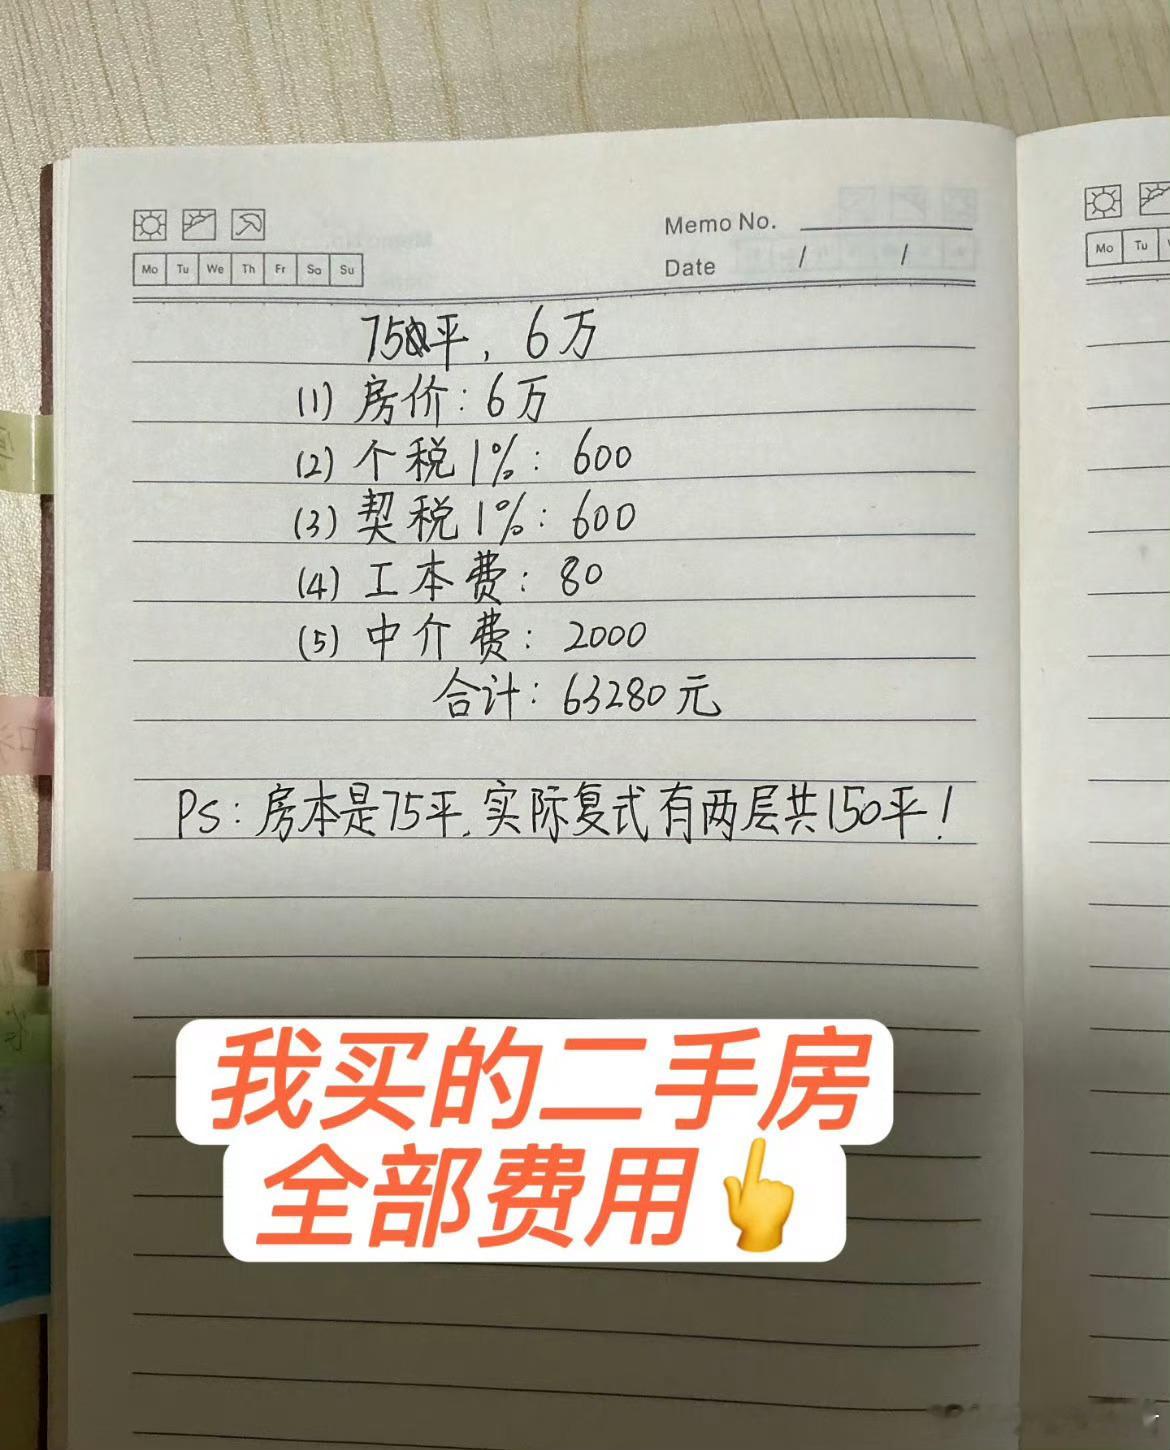 Memo No.
Date / /
Mo Tu We Th Fr Sa Su
Mo Tu
75平，6万
(1) 房价：6万
(2) 个税1%：600
(3) 契税1%：600
(4) 工本费：80
(5) 中介费：2000
合计：63280元
PS：房本是75平，实际复式有两层共150平！
我买的二手房
全部费用👆